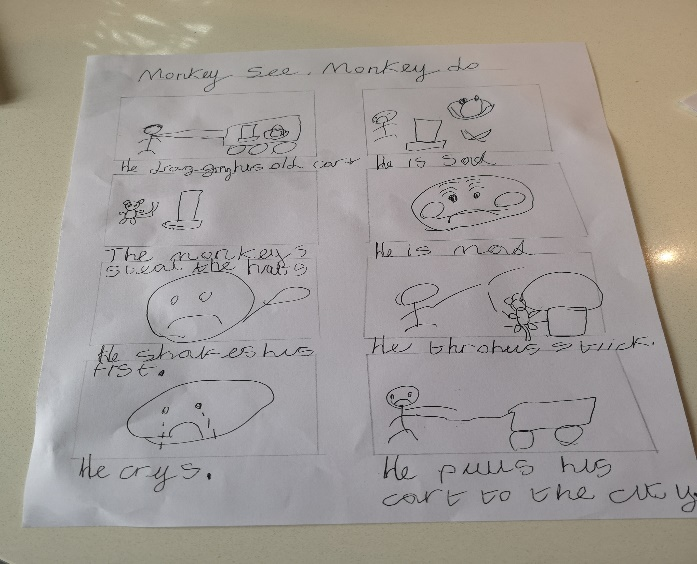 Monkey See, Monkey do
He dragging his old cart
He is sad
The monkeys
steal the hats
He is mad
He shakes his
fist.
He throhws stick.
He crys.
He pulls his
cart to the city